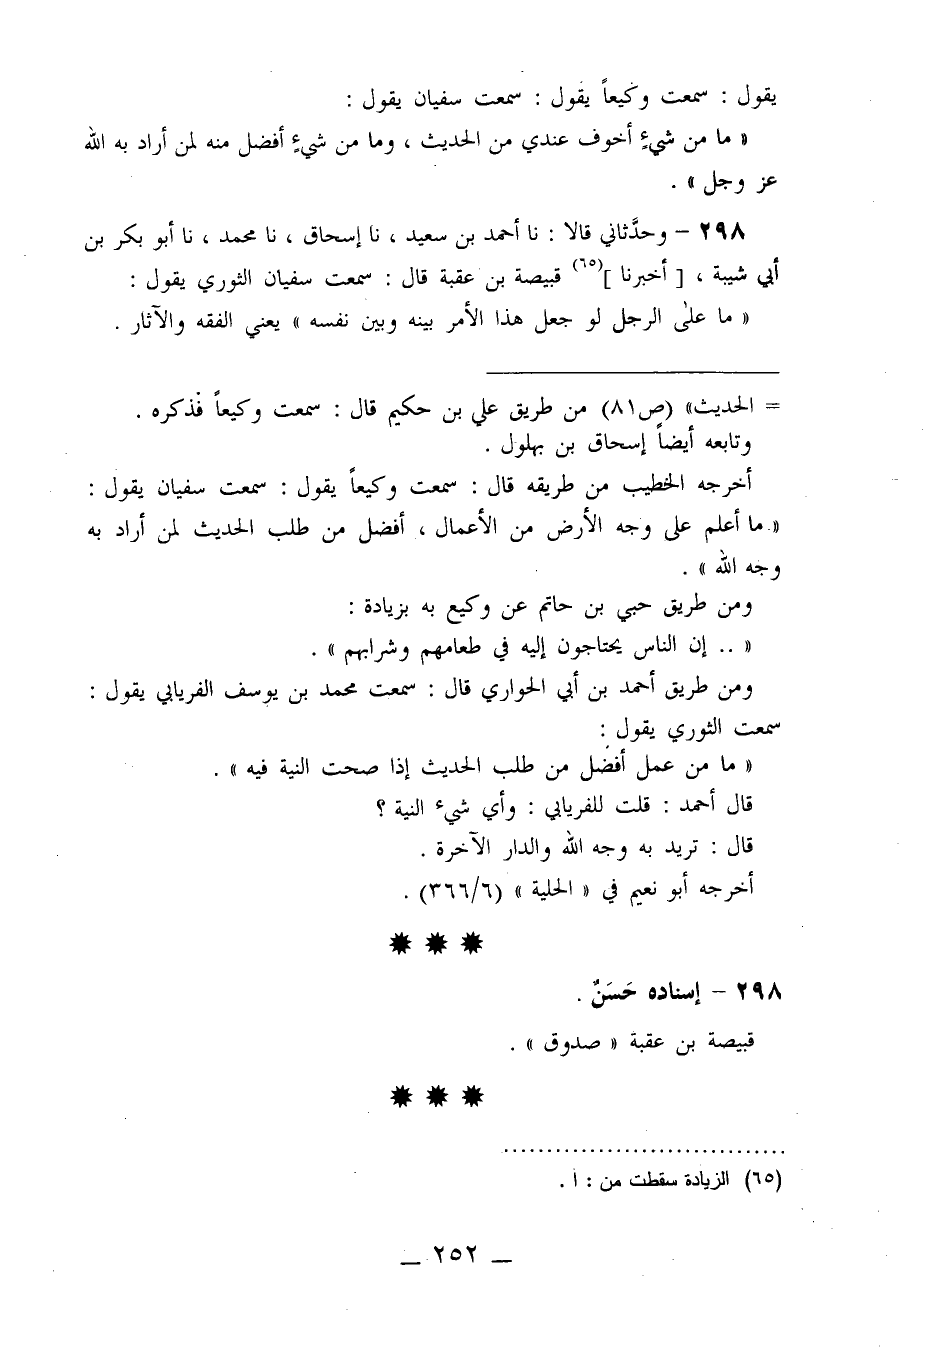 يقول : سمعت وكيعاً يقول : سمعت سفيان يقول :
« ما من شيءٍ أخوف عندي من الحديث ، وما من شيءٍ أفضل منه لمن أراد به الله
عز وجل » .
٢٩٨ – وحدَّثاني قالا : نا أحمد بن سعيد ، نا إسحاق ، نا محمد ، نا أبو بكر بن
أبي شيبة ، [ أخبرنا ](٦٥) قبيصة بن عقبة قال : سمعت سفيان الثوري يقول :
« ما على الرجل لو جعل هذا الأمر بينه وبين نفسه » يعني الفقه والآثار .
= الحديث» (ص٨١) من طريق علي بن حكيم قال : سمعت وكيعاً فذكره .
وتابعه أيضاً إسحاق بن بهلول .
أخرجه الخطيب من طريقه قال : سمعت وكيعاً يقول : سمعت سفيان يقول :
« ما أعلم على وجه الأرض من الأعمال ، أفضل من طلب الحديث لمن أراد به
وجه الله » .
ومن طريق حبي بن حاتم عن وكيع به بزيادة :
« .. إن الناس يحتاجون إليه في طعامهم وشرابهم » .
ومن طريق أحمد بن أبي الحواري قال : سمعت محمد بن يوسف الفريابي يقول :
سمعت الثوري يقول :
« ما من عمل أفضل من طلب الحديث إذا صحت النية فيه » .
قال أحمد : قلت للفريابي : وأي شيء النية ؟
قال : تريد به وجه الله والدار الآخرة .
أخرجه أبو نعيم في « الحلية » (٣٦٦/٦) .
٢٩٨ – إسناده حَسَنٌ .
قبيصة بن عقبة « صدوق » .
(٦٥) الزيادة سقطت من : أ .
– ٢٥٢ –